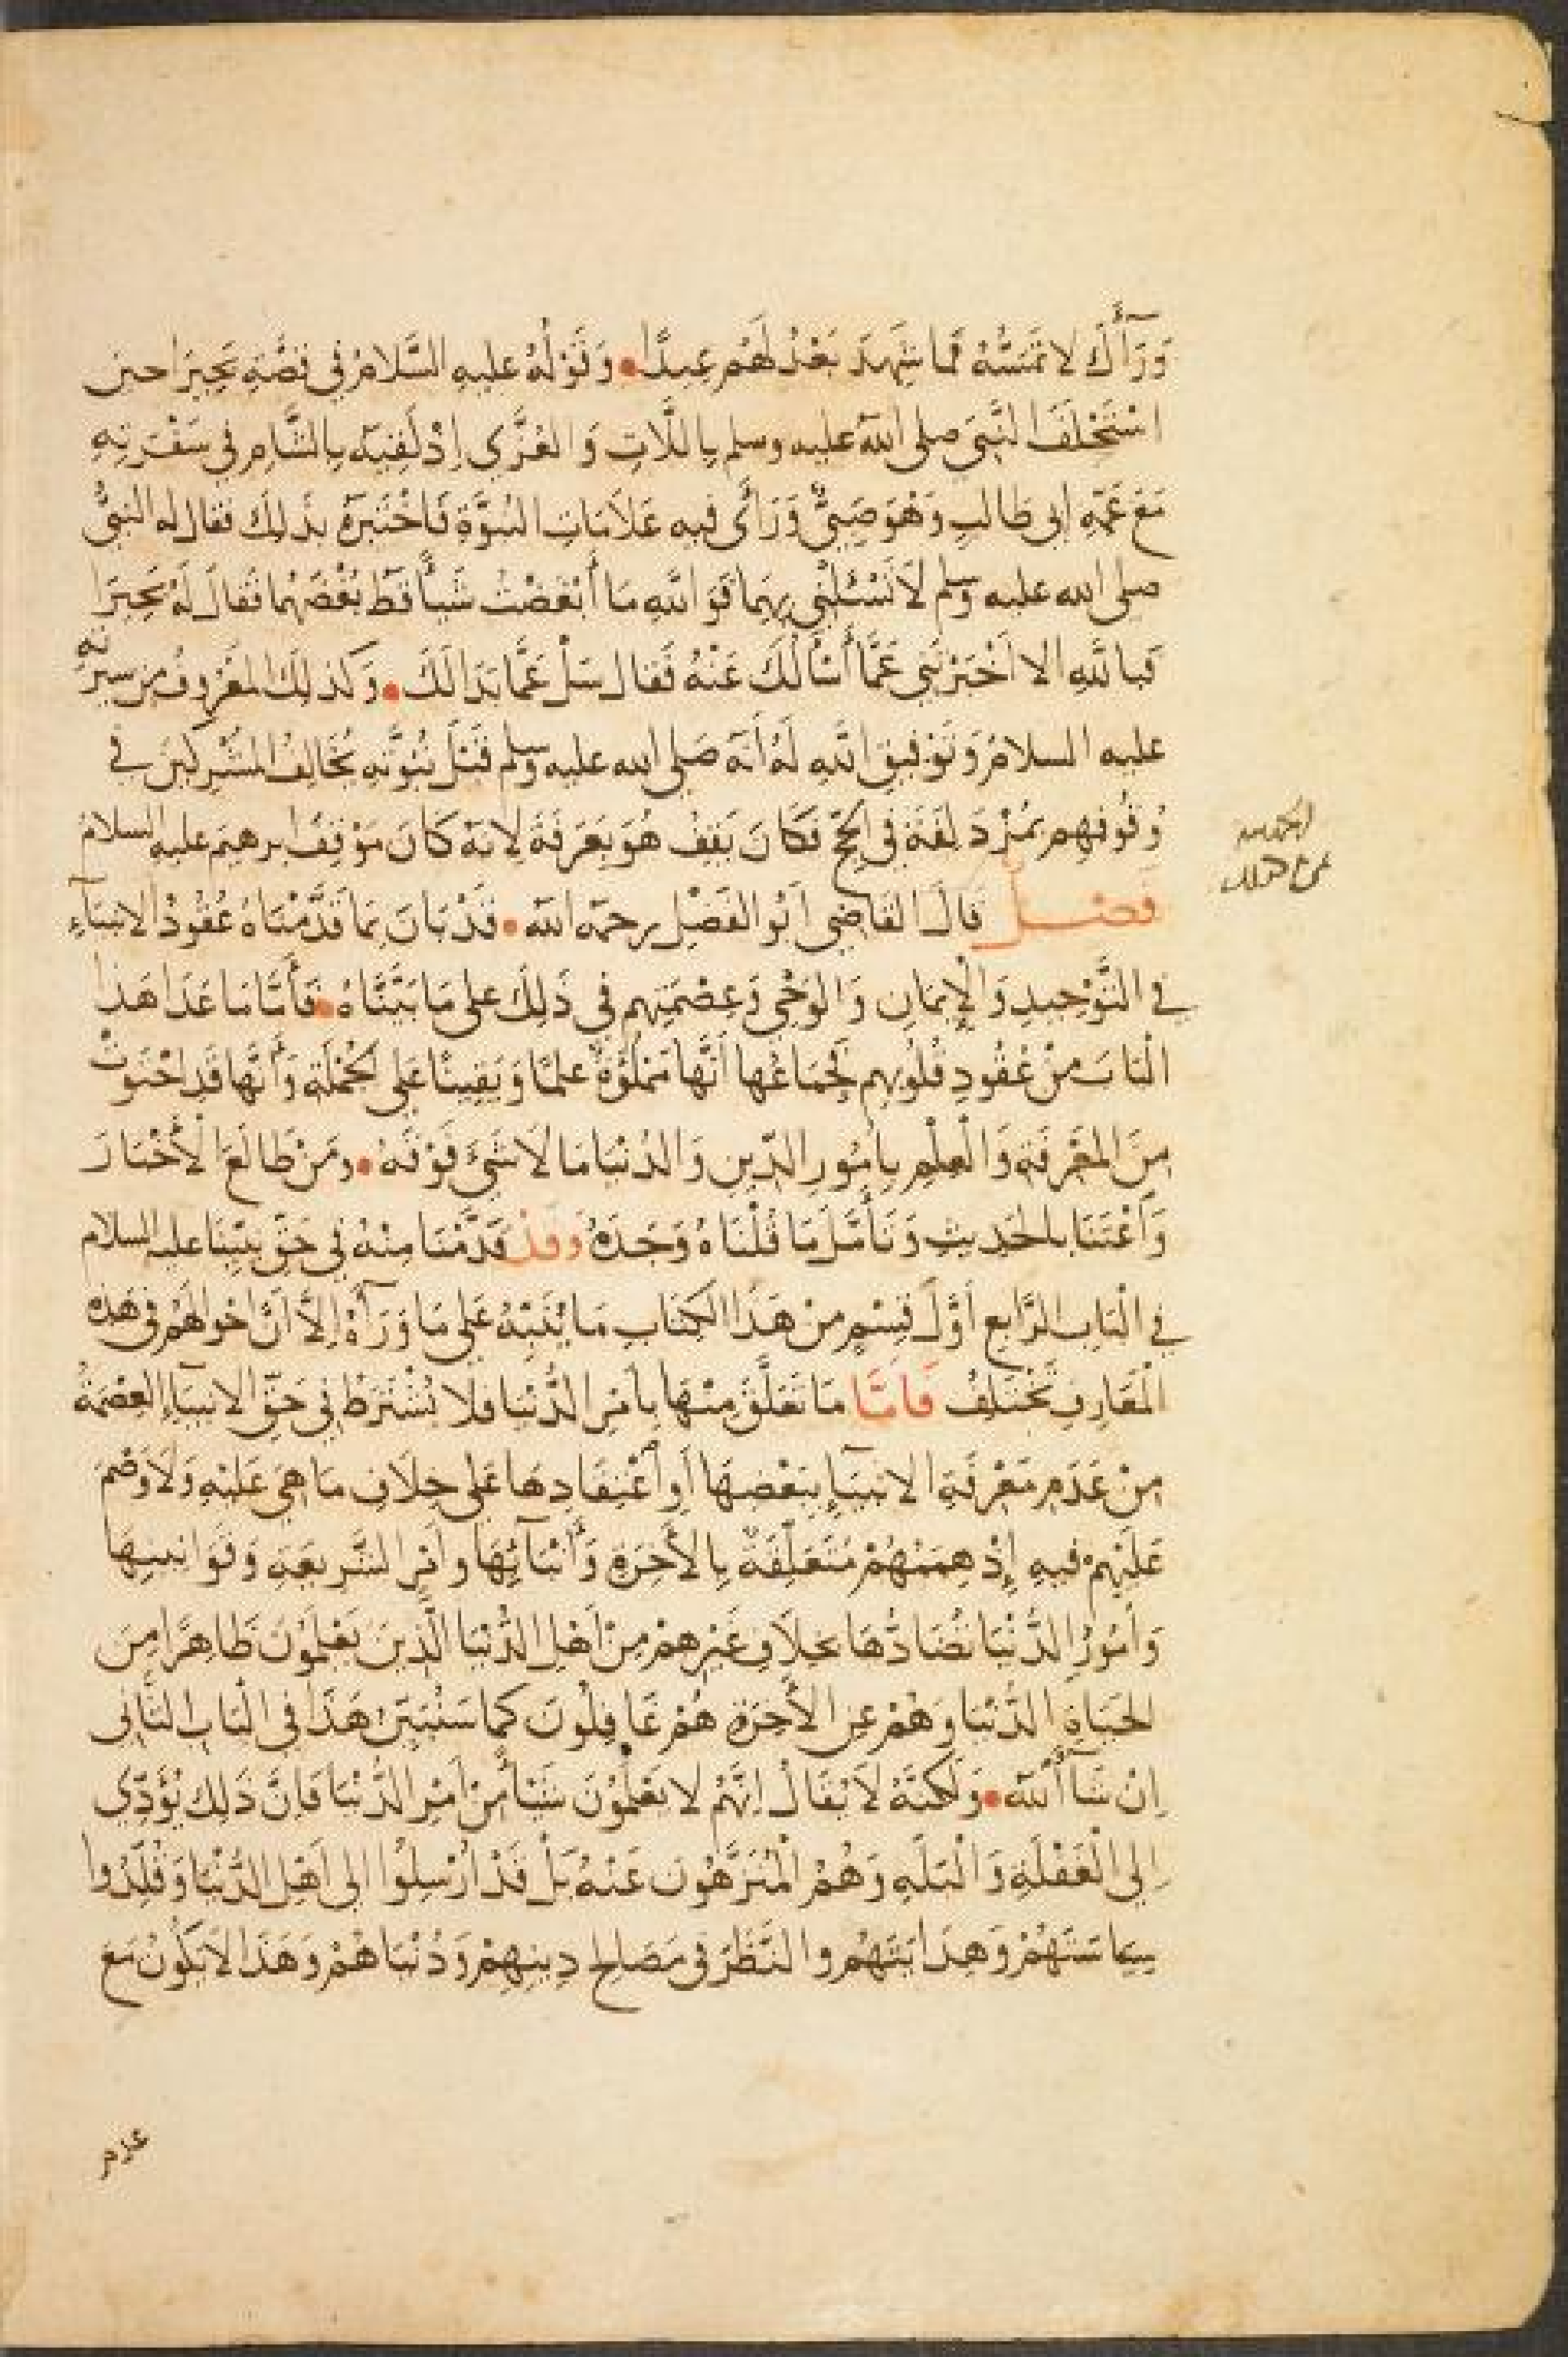 وَرَآءَكَ لا تَمَسَّهُ فما شَهِدَ بَعْدُ لَهُم عِيدًا • وَقَوْلُهُ عليه السَّلامُ في قصَّةِ بَحِيرَا حين
اسْتَحْلَفَ النَّبِىَ صلى الله عليه وسلم بِاللَّاتِ وَالعُزَّى إِذْ لَقِيَهُ بِالشَّامِ في سَفْرَتِهِ
مَعَ عَمِّهِ ابى طالبٍ وَهْوَ صَبِىٌّ وَرَأَى فيه عَلَامَاتِ النبُوَّةِ فَاخْتَبَرَهُ بذلِكَ فقال له النبىُّ
صلى الله عليه وسلم لَا تَسْئَلْنِى بِهِمَا فَوَ اللهِ مَا أَبْغَضْتُ شَيأً قَطُّ بُغْضَهُما فَقَالَ لَهُ بَحِيرَا
فَبِاللهِ الا اَخْبَرْتَنِى عَمَّا أَسْأَلُكَ عَنْهُ فَقال سَلْ عَمَّا بَدَا لَكَ • وَكذلِكَ المَعْرُوفُ مِن سِيرَتِه
عليه السلامُ وَتَوْفِيقِ اللهِ لَهُ اَنَّهُ صَلى الله عليه وسلم قَبْلَ نُبُوَّتِه يُخَالِفُ المشْرِكينَ في
وُقُوفِهِم بِمُزْدَلِفَةَ فى الحَجِّ فَكَانَ يَقِفُ هُوَ بِعَرَفَةَ لِانَّهُ كَانَ مَوْقِفَ ابرهيمَ عليه السلام
فصل قالَ القَاضِى اَبُو الفَضْلِ رحمه الله • قَدْ بَانَ بِمَا قَدَّمْنَاهُ عُقُودُ الانبيَآءِ
في التَّوْحِيدِ وَالْإِيمَانِ وَالوَحْىِ وَعِصْمَتِهم في ذَلِكَ على مَا بَيَّنَّاهُ • فَأَمَّا مَا عَدَا هَذا
الْبَابَ مِنْ عُقُودِ قُلُوبِهم فَجِمَاعُها اَنَّها مَمْلُؤَةٌ عِلمًا وَيَقِينًا عَلى الجُمْلَةِ وَأَنَّها قَدِ احْتَوَتْ
مِنَ المَعْرِفَةِ وَالْعِلْمِ بِاُمُورِ الدِّينِ وَالدُنْيَا مَا لَا شَىْءَ فَوْقَهُ • ومَنْ طَالَعَ الْأَخْبَارَ
وَاعْتَنَا بالحَدِيثِ وَتَأَمَّلَ مَا قُلْنَاهُ وَجَدَهُ وَقَدْ قَدَّمْنَا مِنْهُ في حَقِّ نَبِيِّنَا عليه السلام
في الْبَابِ الرَّابِعِ أَوَّلَ قِسْمٍ مِنْ هَذَا الكِتَابِ مَا يُنَبِّهُ عَلى مَا وَرَآءَهُ اِلَّا اَنَّ احْوالَهُمْ فى هذه
الْمَعَارِفِ تَخْتَلِفُ فَاَمَّا مَا تَعَلَّقَ مِنْهَا بِاَمْرِ الدُّنْيَا فلا يُشْتَرَطُ فِي حَقِّ الانبيَآءِ العِصْمَةُ
مِنْ عَدَمِ مَعْرِفَةِ الانبيَآءِ بِبَعْضِهَا أَوِ اعْتِقَادِهَا عَلى خِلَافِ مَا هِىَ عَلَيْهِ وَلَا وَصْمَ
عَلَيْهِمْ فيهِ إِذْ هِمَمُهُمْ مُتَعَلِّقَةٌ بِالأَخِرَةِ وَأَنْبَآئِهَا وامْرِ الشَّرِيعَةِ وَقَوَانِينِهَا
وَاُمُورُ الدُّنْيَا تُضَادُّهَا بخلَافِ غَيْرِهِمْ مِنْ اَهْلِ الدُّنْيَا الَّذِينَ يَعْلَمُونَ ظَاهِرًا مِنَ
الحَيَاةِ الدُّنْيَا وَهُمْ عِن الأَخِرَةِ هُمْ غَافِلُونَ كما سَنُبَيِّنُ هَذَا فى الْبَابِ الثَّانى
اِنْ شَاءَ اللهُ • وَلَكِنَّهُ لَا يُقَالُ اِنَّهُمْ لا يَعْلَمُونَ شَيْأً مِنْ اَمْرِ الدُّنْيَا فَاِنَّ ذَلِكَ يُؤَدِّي
اِلى الْغَفْلَةِ وَالْبَلَهِ وَهُمُ الْمُنَزَّهُونَ عَنْهُ بَلْ قَدْ اُرْسِلُوا الى اَهْلِ الدُّنْيَا وَقُلِّدُوا
سِيَاسَتَهُمْ وَهِدَايَتَهُم والنَّظَرَ فى مَصَالِحِ دِينِهِمْ وَدُنْيَاهُمْ وَهَذَا لَا يَكُونُ مَعَ
عدم